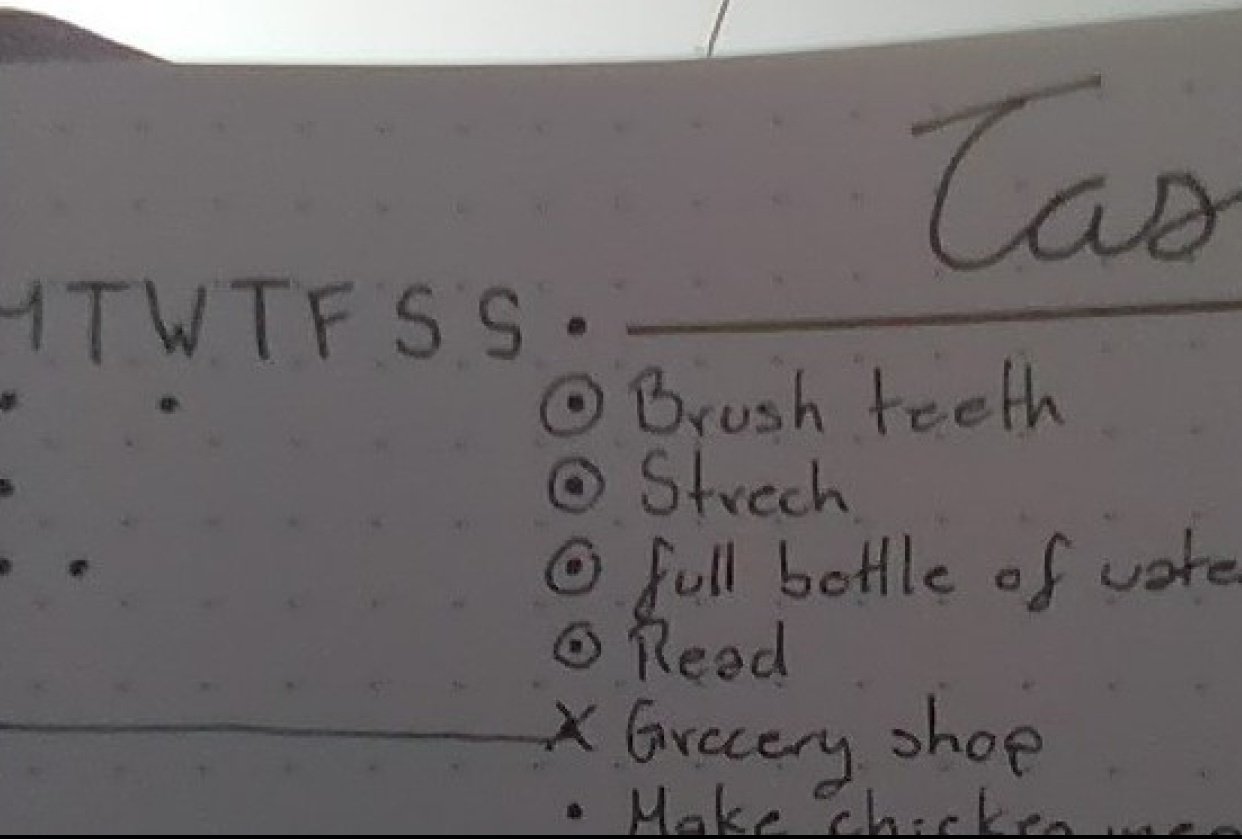 Tas
MTWTFSS
Brush teeth
Strech
full bottle of wate
Read
Grocery shop
Make chicken